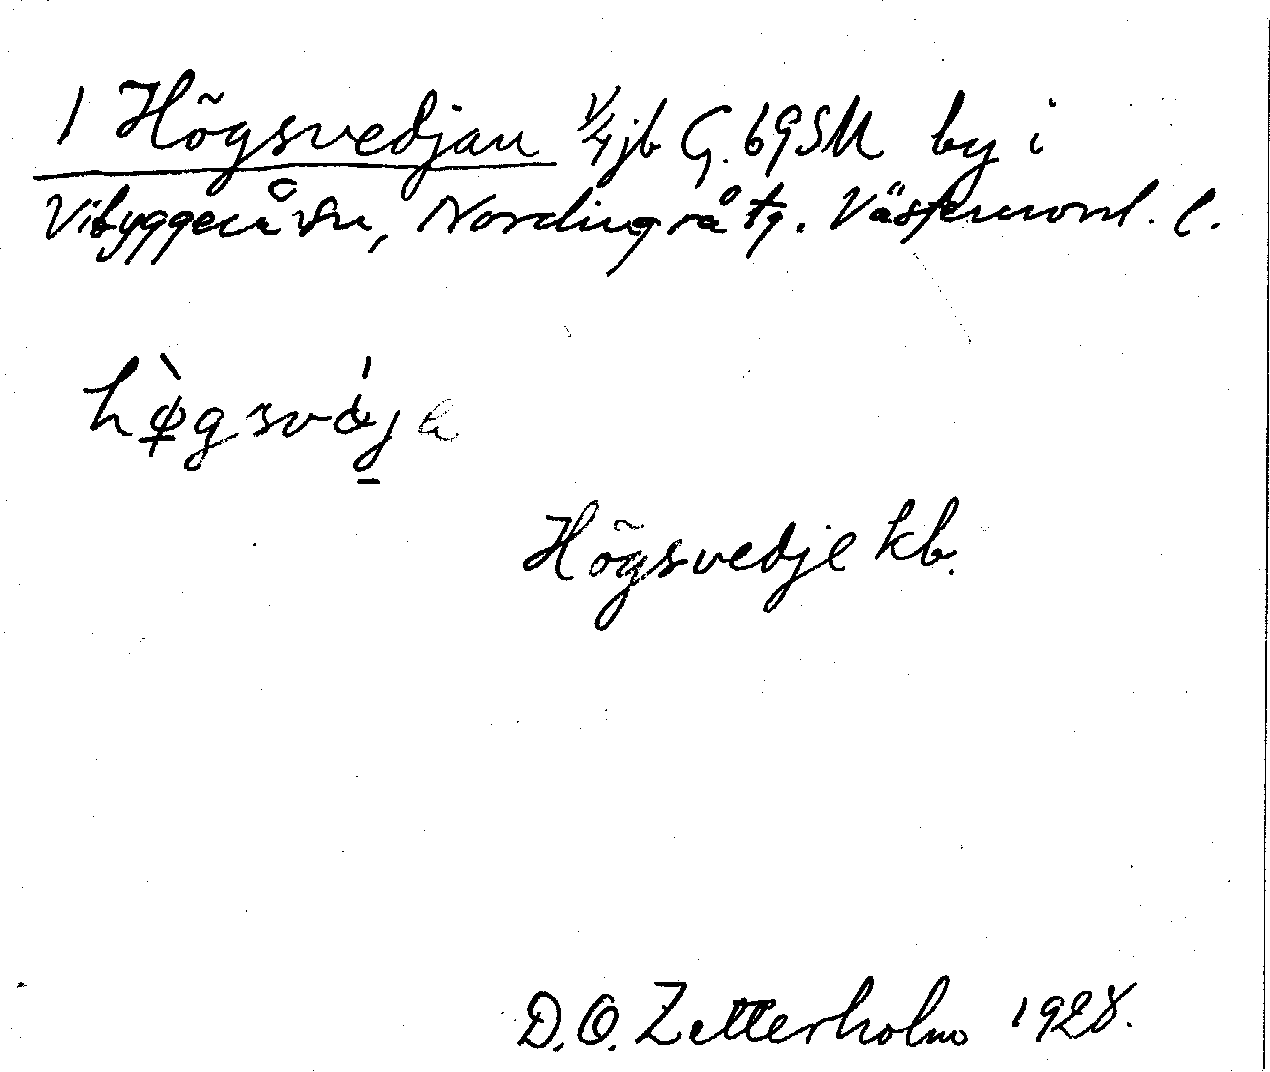 1 Högsvedjan 1/4 jb G. 69 SM by i
Vibyggerå sn, Nordingrå tg. Västernorrl. l.
hø̀gsvája
Högsvedje kb.
D.O. Zetterholm 1928.